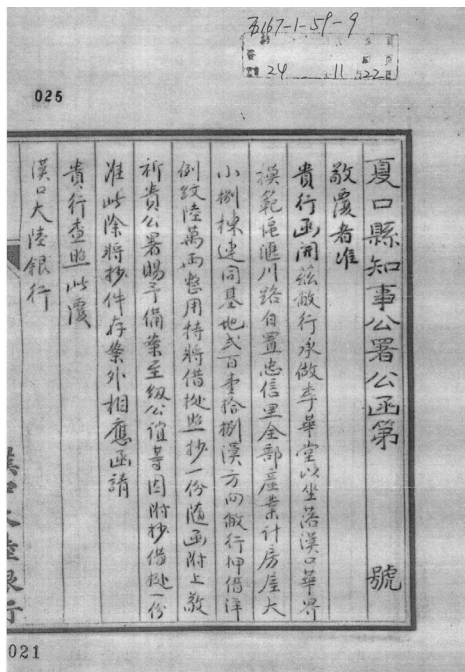 历167-1-59-9
24 11 22
025
夏口縣知事公署公函第 號
敬覆者准
貴行函開兹敝行承做李華堂以坐落漢口華界
模範區滙川路自置忠信里全部産業計房屋大
小捌棟連同基地弍百壹拾捌漢方向敝行押借洋
例紋陸萬兩整用特將借據照抄一份随函附上敬
祈貴公署賜予備案至級公誼等因附抄借據一份
准此除將抄件存案外相應函請
貴行查照此覆
漢口大陸銀行
漢口大陸銀行
021